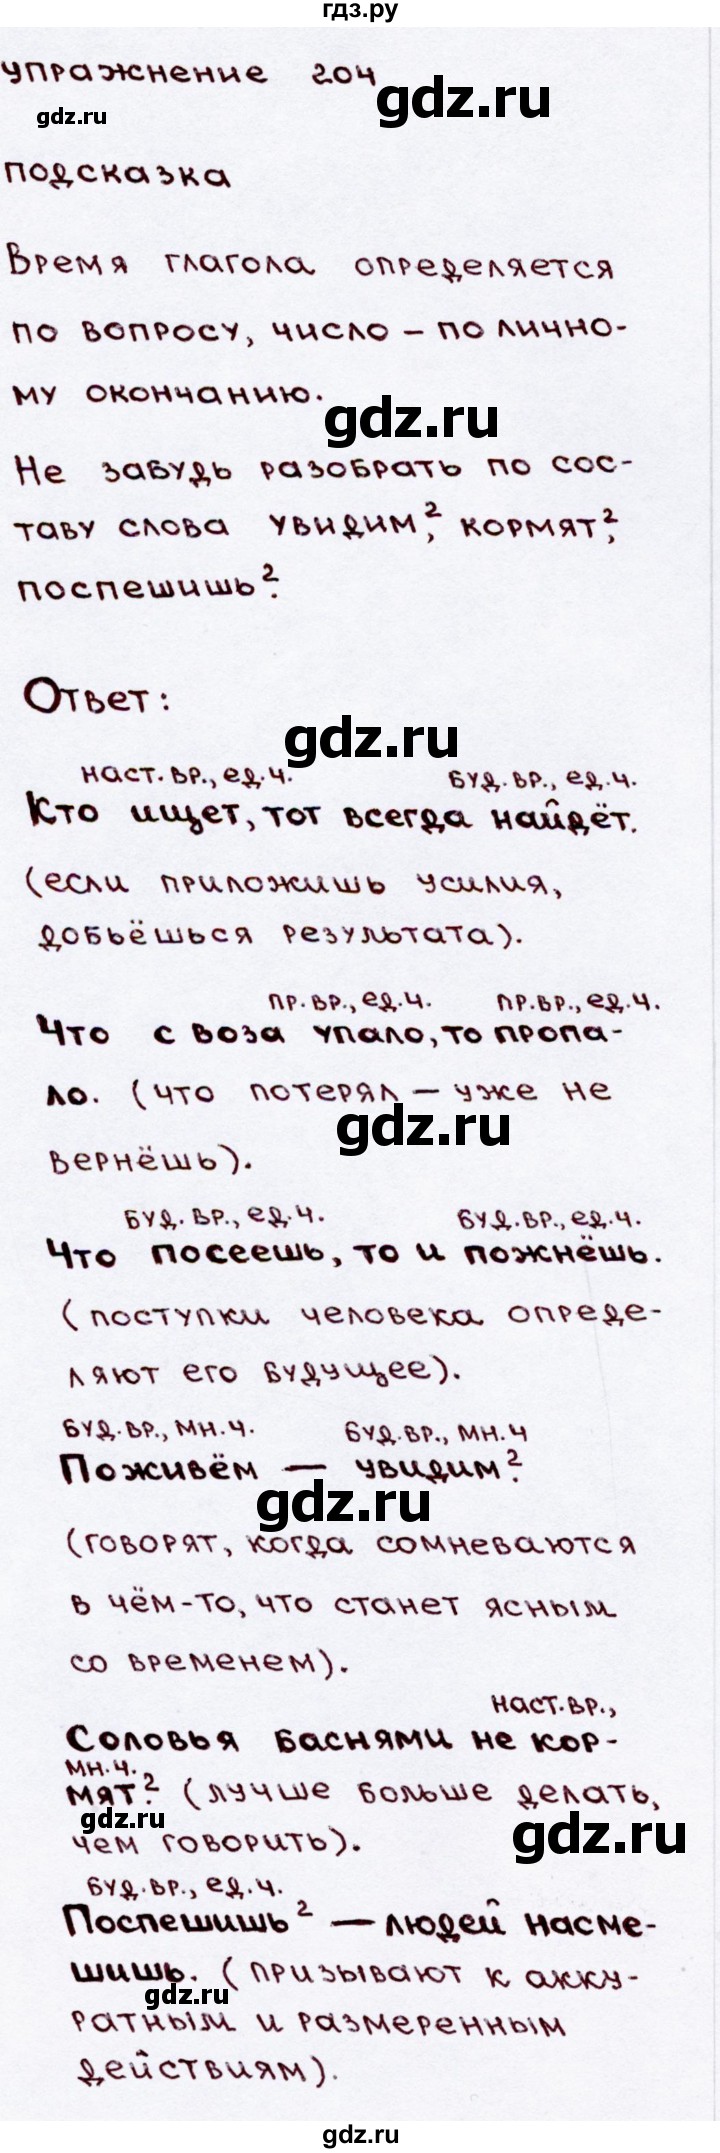 гдз.ру
упражнение 204
gdz.ru
gdz.ru
подсказка
Время глагола определяется
по вопросу, число – по лично-
му окончанию.
gdz.ru
Не забудь разобрать по сос-
таву слова увидим², кормят²,
поспешишь².
Ответ:
gdz.ru
наст. вр., ед. ч. буд. вр., ед. ч.
Кто ищет, тот всегда найдёт.
(если приложишь усилия,
добьёшься результата).
пр. вр., ед. ч. пр. вр., ед. ч.
Что с воза упало, то пропа-
ло. (что потерял – уже не
gdz.ru
вернёшь).
буд. вр., ед. ч. буд. вр., ед. ч.
Что посеешь, то и пожнёшь.
(поступки человека опреде-
ляют его будущее).
буд. вр., мн. ч. буд. вр., мн. ч
Поживём — увидим².
gdz.ru
(говорят, когда сомневаются
в чём-то, что станет ясным
со временем).
наст. вр.,
Соловья баснями не кор-
мн. ч.
мят². (лучше больше делать,
gdz.ru
gdz.ru
чем говорить).
буд. вр., ед. ч.
Поспешишь² — людей насме-
шишь. (призывают к акку-
gdz.ru
ратным и размеренным
действиям).
gdz.ru